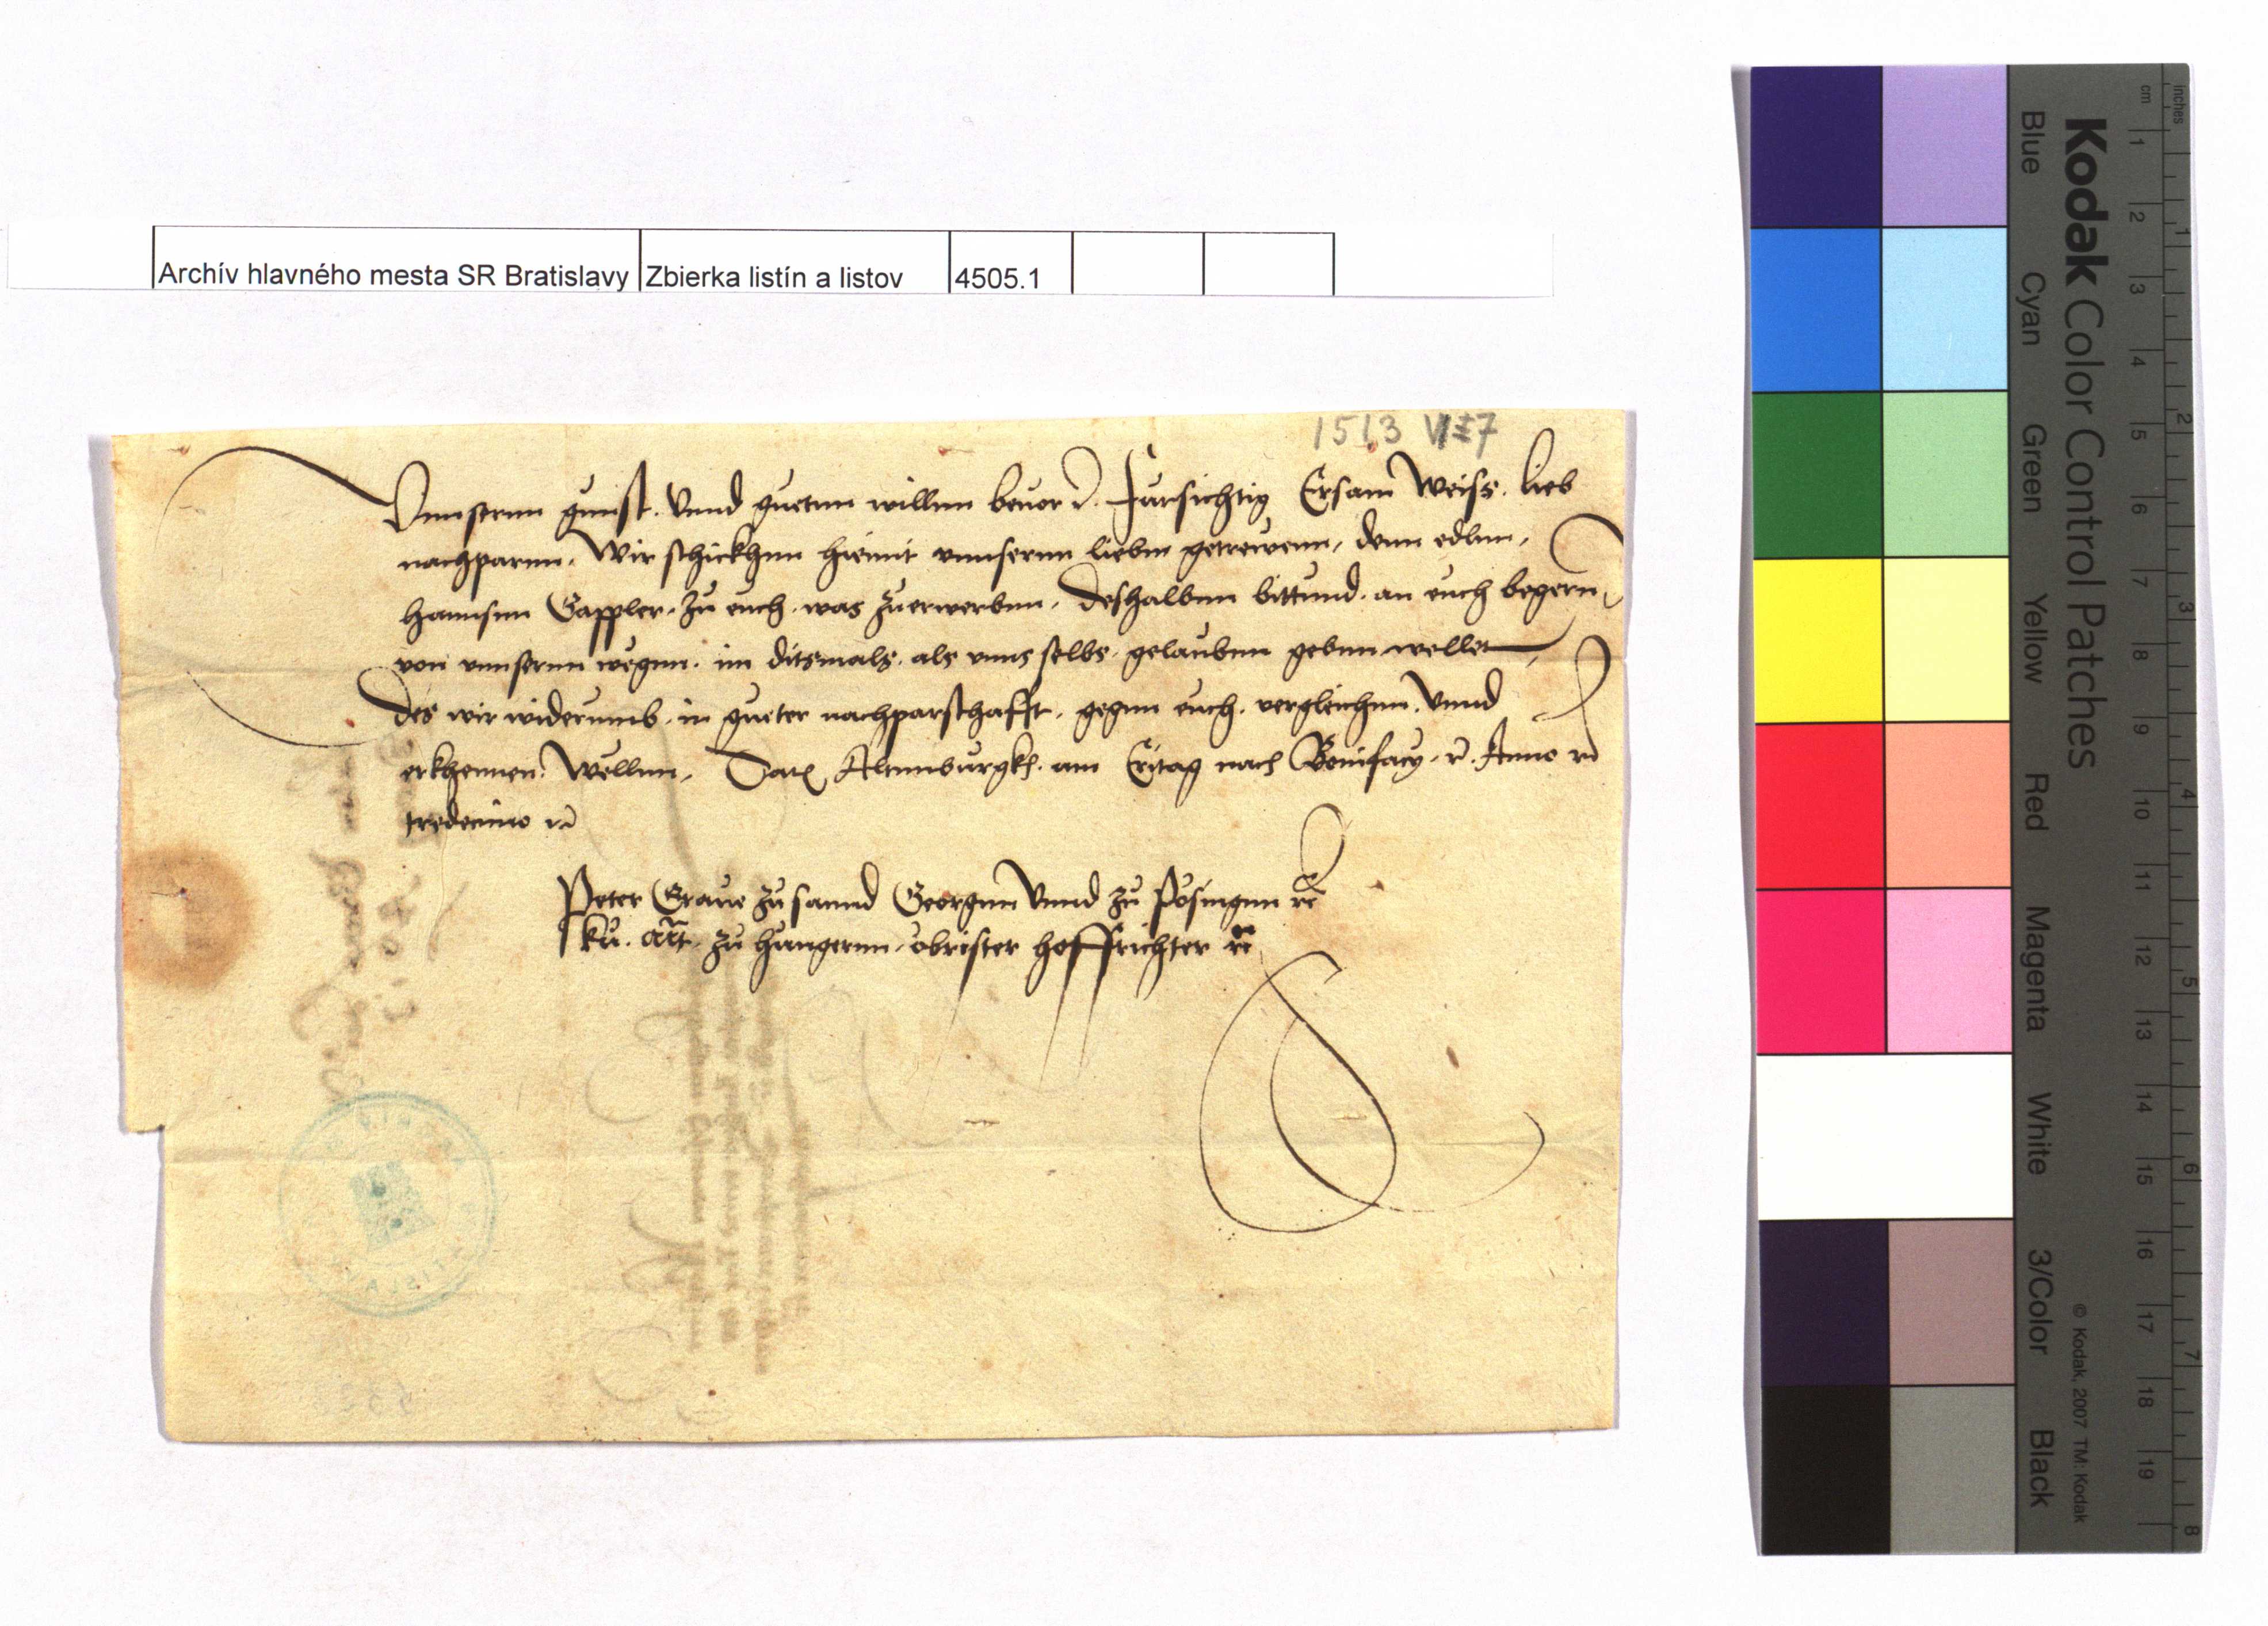 Archív hlavného mesta SR Bratislavy Zbierka listín a listov 4505.1
1513 VI 7
Vnnsernn gunst. Vnnd guetnn willnn beuor. Fursichtig Ersam Weiss. lieb
nachparnn. Wir schickhnn hiemit vnnsernn liebnn getrewenn, denn edlnn,
hannsnn Gappler. zu euch. was zuerwerbnn. deshalbnn bittund. an euch begern,
von vnnsernn wegnn. im ditsmals. als vnns selbs. gelaubnn gebnn wellet,
des wir widerumb. in gueter nachparschafft. gegnn euch. vergleichnn. Vnnd
erkhennen. Wellnn, Dat Altnnburgkh. am Eritag nach Bonifacy. Anno
tredecimo
Peter Graue zu sannd Georgnn Vnnd zu Posingnn
ku. zu hungernn. obrister hoffrichter
Kodak Color Control Patches
Blue Cyan Green Yellow Red Magenta White 3/Color Black
© Kodak, 2007 TM: Kodak
inches 1 2 3 4 5 6 7 8
cm 1 2 3 4 5 6 7 8 9 10 11 12 13 14 15 16 17 18 19